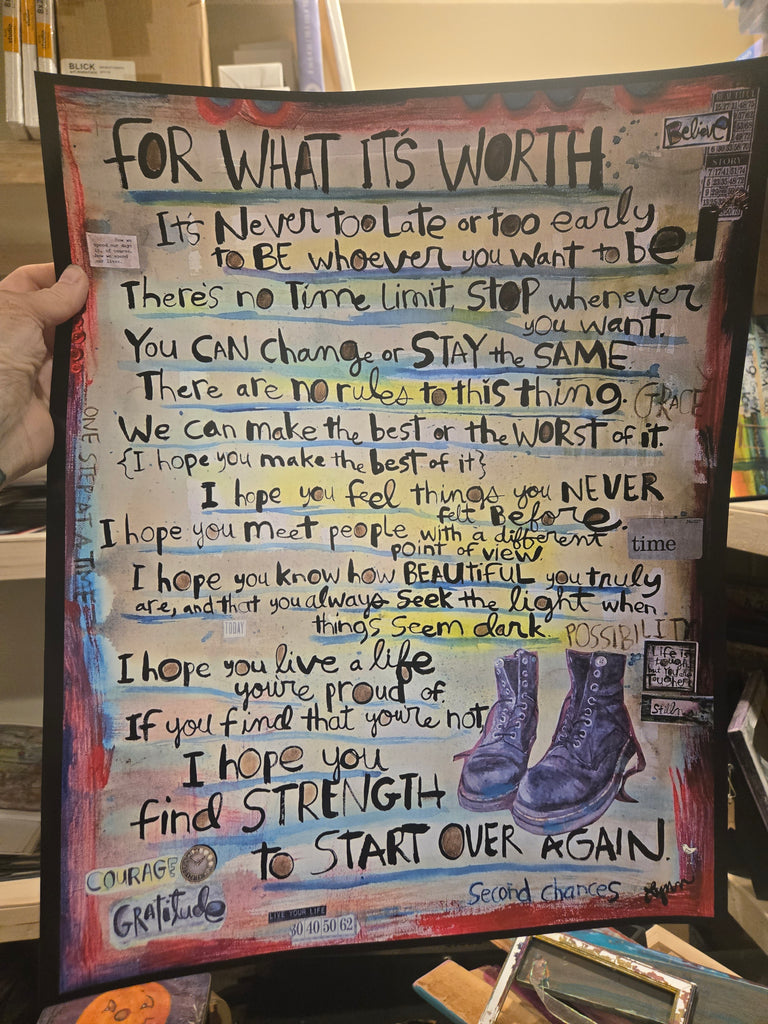 BLICK
FOR WHAT IT'S WORTH
Believe
STORY
It's Never too Late or too early
to BE whoever you Want to be
There's no Time Limit, STOP whenever
you want.
You CAN change or STAY the SAME.
There are no rules to this thing.
GRACE
We can make the best or the WORST of it.
{I hope you make the best of it}
I hope you feel things you NEVER
felt Before.
I hope you meet people with a different
point of view.
time
ONE STEP AT A TIME
I hope you know how BEAUTIFUL you truly
are, and that you always Seek the light when
things Seem dark.
TODAY
POSSIBILITY
Life is
tough
but you're
tougher
I hope you live a life
you're proud of.
If you find that you're not,
I hope you
find STRENGTH
to START OVER AGAIN.
COURAGE
Gratitude
LIVE YOUR LIFE
30 40 50 62
Second chances